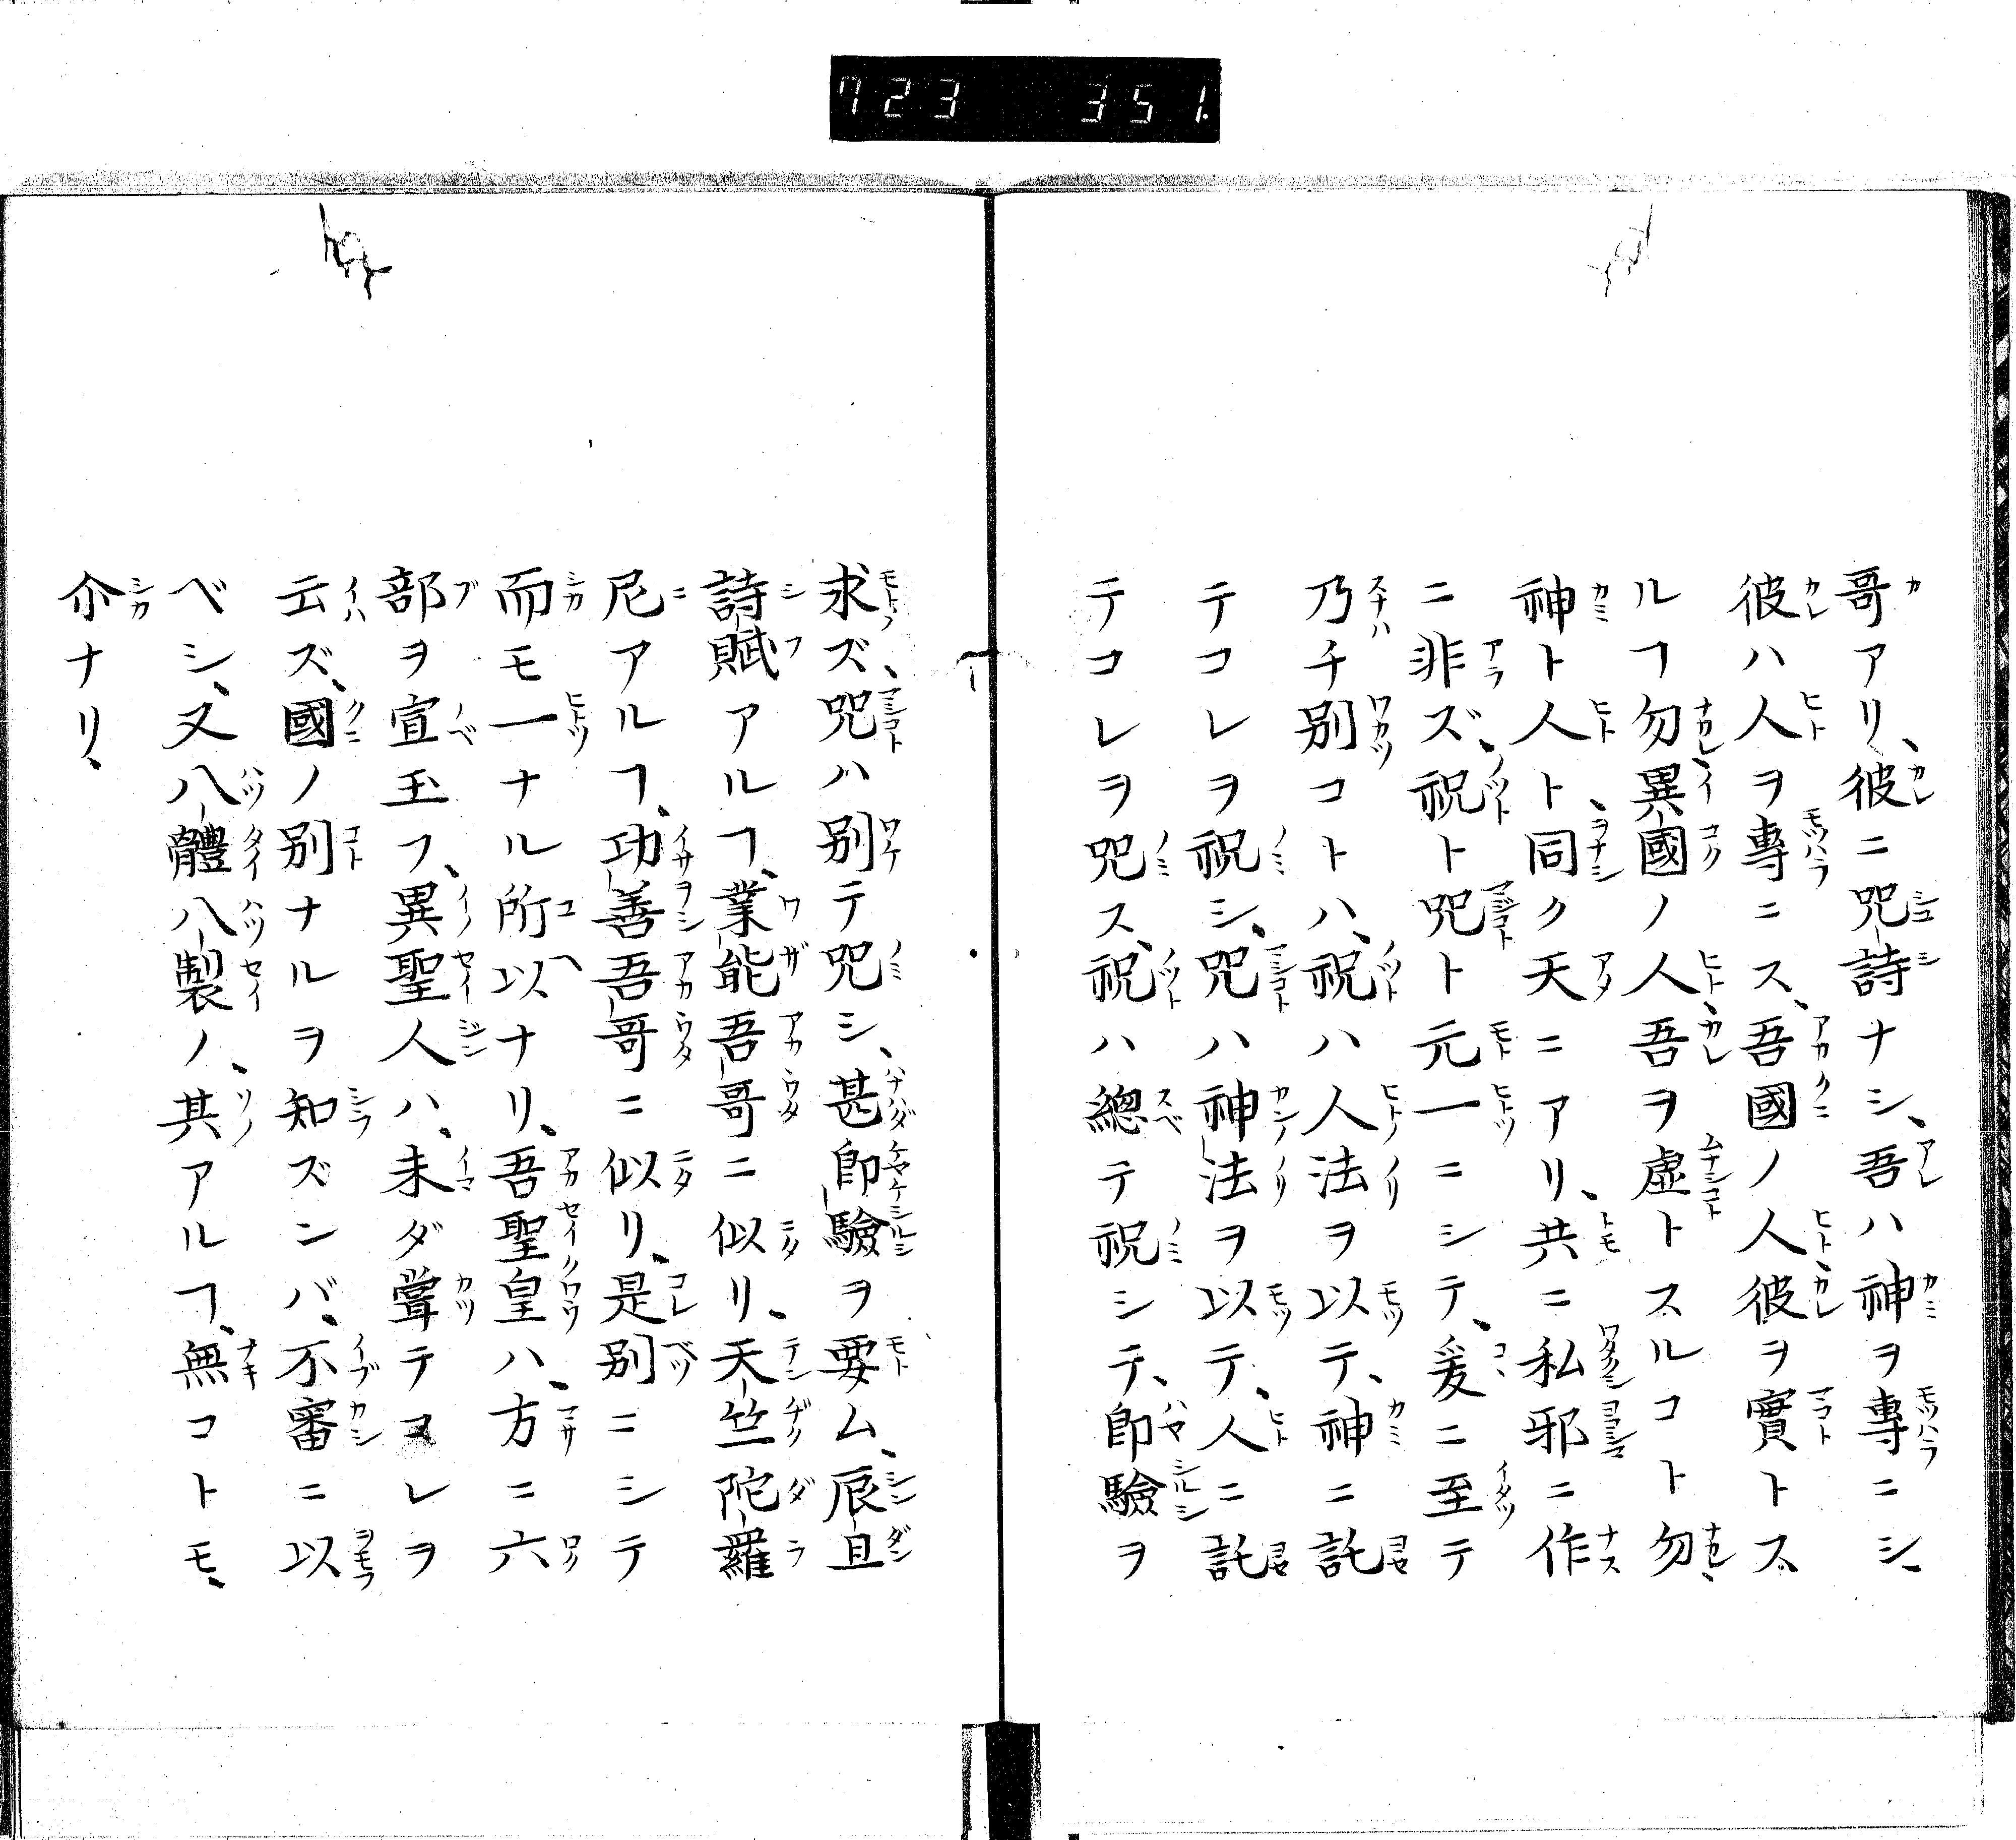 723 351.
哥アリ、彼ニ咒詩ナシ、吾ハ神ヲ專ニシ、
彼ハ人ヲ專ニス、吾國ノ人彼ヲ實トス
ルヿ勿異國ノ人吾ヲ虛トスルコト勿、
神ト人ト同ク天ニアリ、共ニ私邪ニ作
ニ非ズ、祝ト咒ト元一ニシテ、爰ニ至テ
乃チ別コトハ、祝ハ人法ヲ以テ、神ニ託
テコレヲ祝シ、咒ハ神法ヲ以テ、人ニ託
テコレヲ咒ス、祝ハ總テ祝シテ、即驗ヲ
求ズ、咒ハ別テ咒シ、甚即驗ヲ要ム、辰旦
詩賦アルヿ、業能吾哥ニ似リ、天竺陀羅
尼アルヿ、功善吾哥ニ似リ、是別ニシテ
而モ一ナル所以ナリ、吾聖皇ハ、方ニ六
部ヲ宣玉フ、異聖人ハ、未ダ嘗テコレヲ
云ズ、國ノ別ナルヲ知ズンバ、不審ニ以
ベシ、又八體八製ノ、其アルヿ、無コトモ、
尒ナリ、